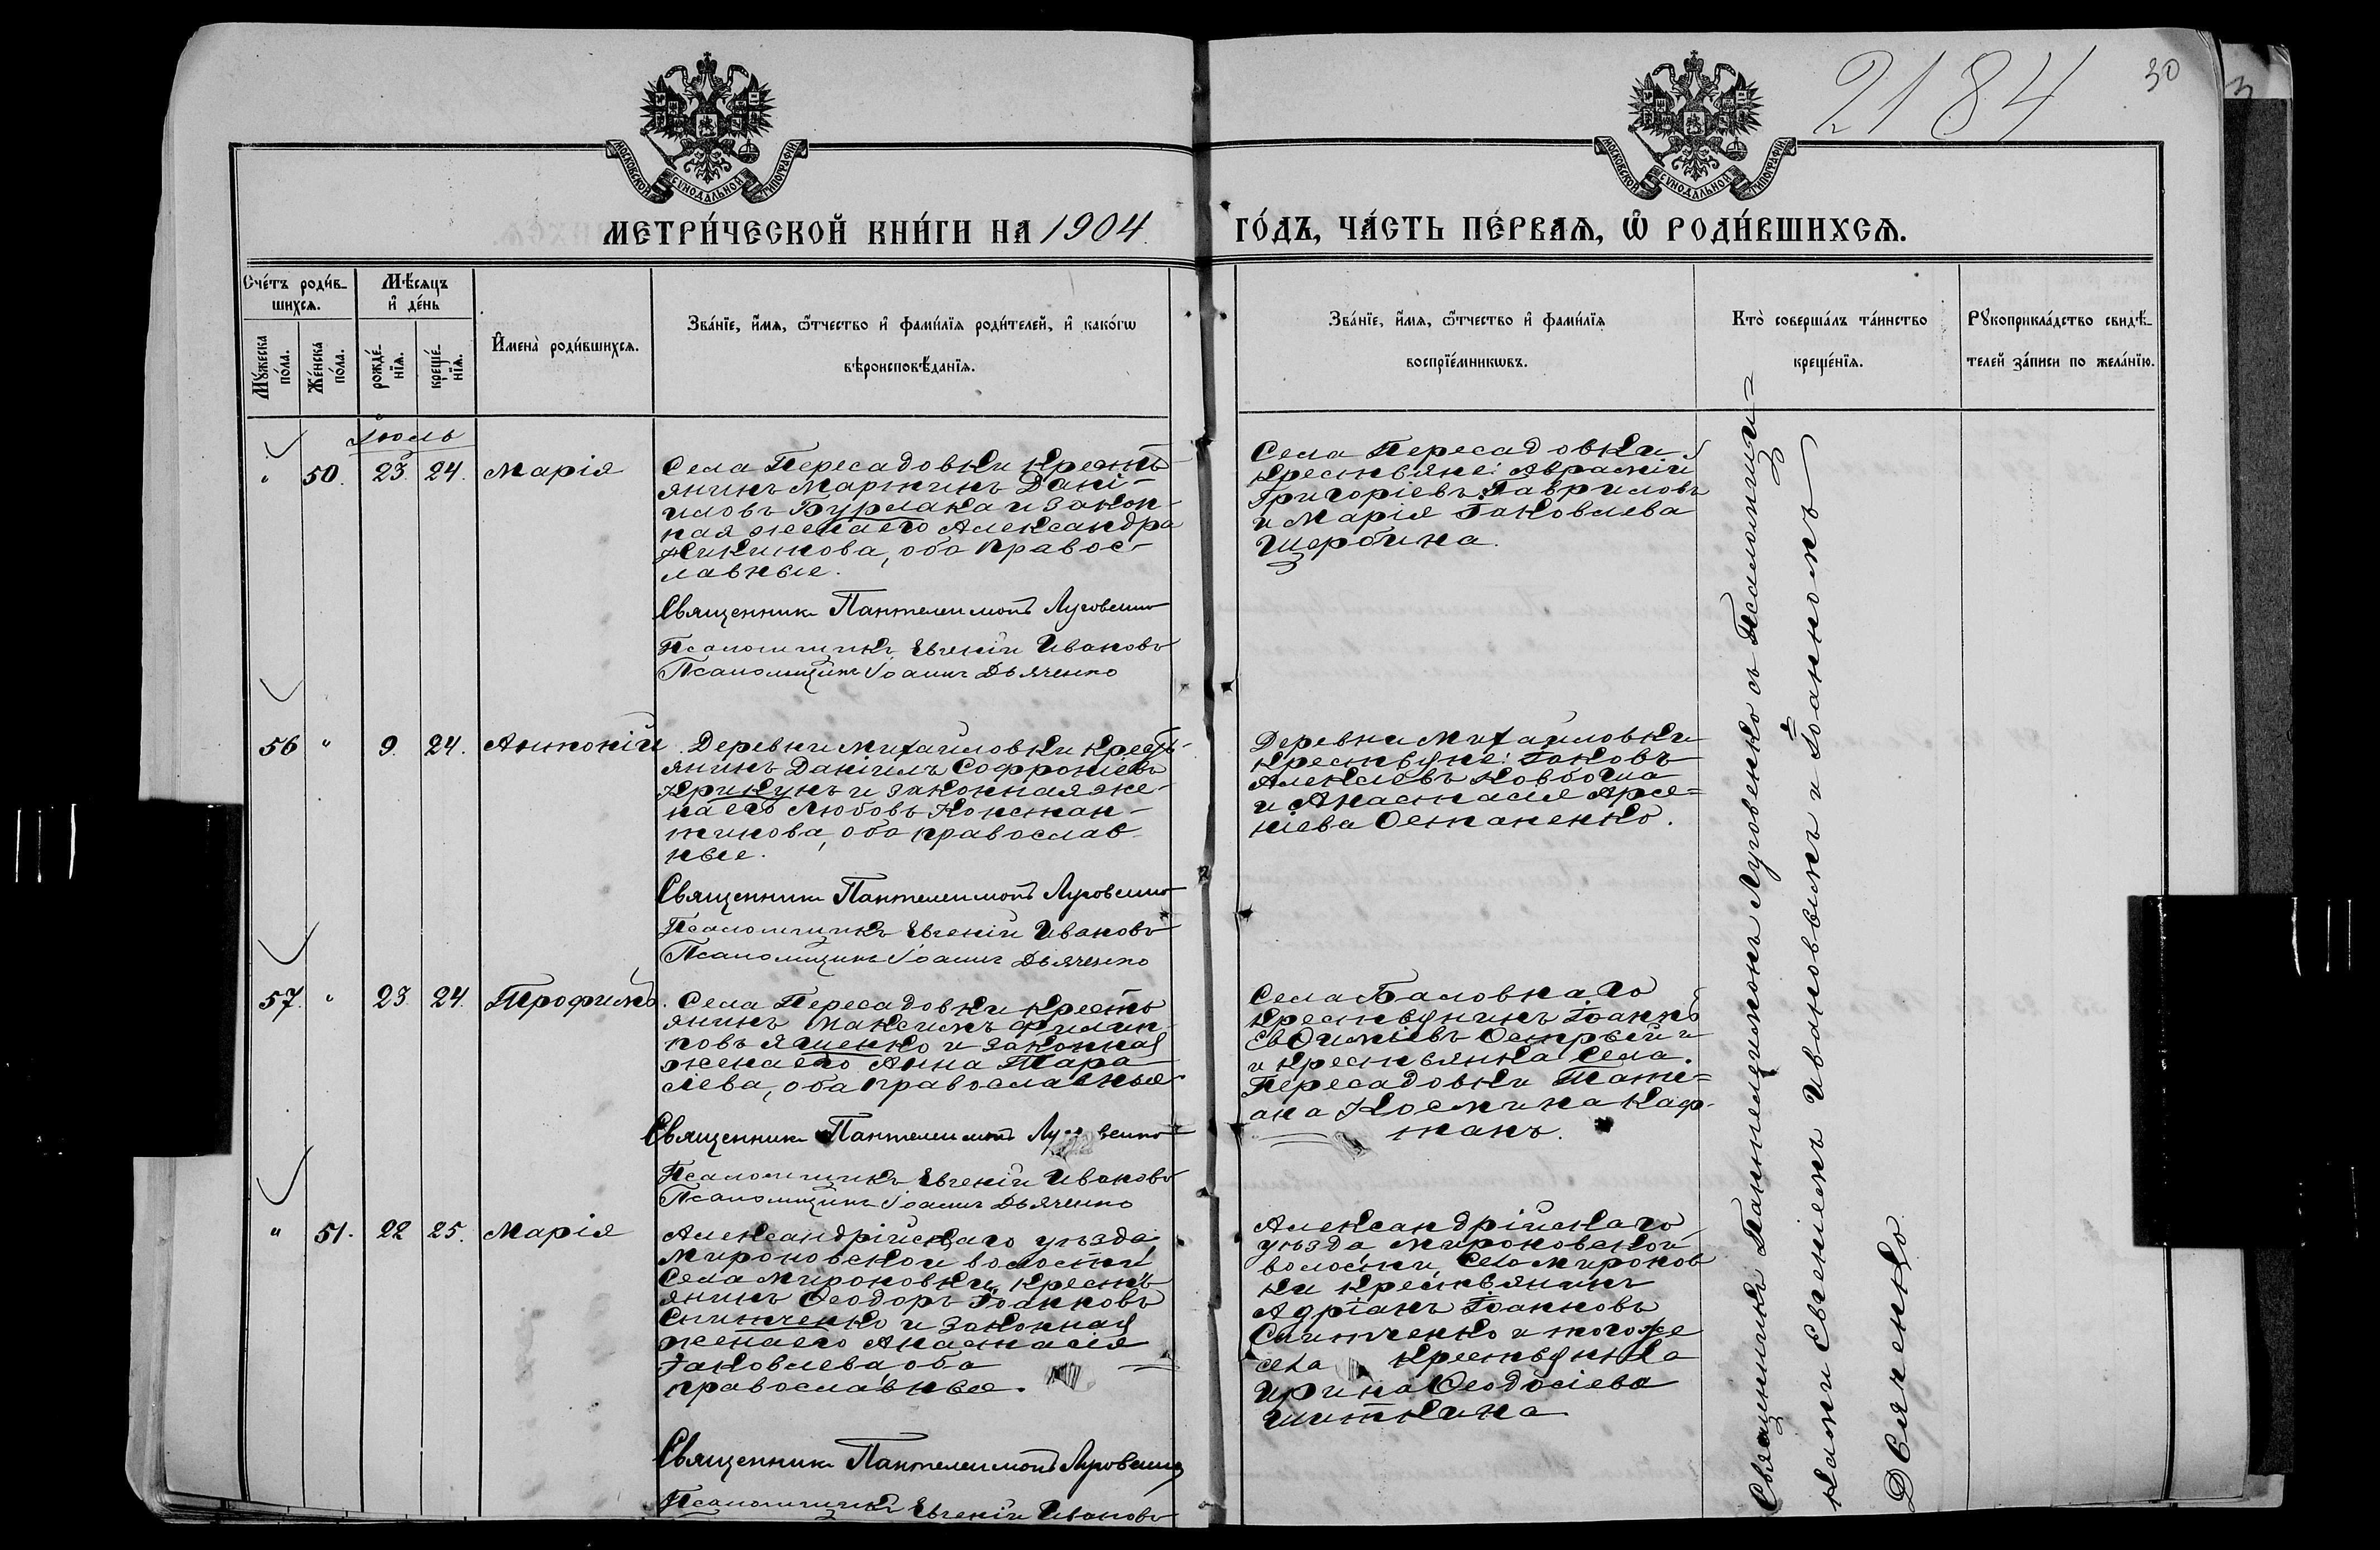 2184
30
МОСКОВСКОЙ СѴНОДАЛЬНОЙ ТИПОГРАФІИ
МОСКОВСКОЙ СѴНОДАЛЬНОЙ ТИПОГРАФІИ
МЕТРИ́ЧЕСКОЙ КНИ́ГИ НА 1904
ГО́ДЪ, ЧА́СТЬ ПЕ́РВАѦ, Ѡ҆ РОДИ́ВШИХСѦ.
Сче́тъ роди́в-
шихсѧ.
Мꙋ́жеска
по́ла.
Же́нска
по́ла.
Мѣ́сѧцъ
и҆ де́нь
рожде́-
нїѧ.
креще́-
нїѧ.
И҆мена̀ роди́вшихсѧ.
Зва́нїе, и҆́мѧ, ѻ҆́тчество и҆ фами́лїѧ роди́телей, и҆ како́гѡ
вѣроисповѣ́данїѧ.
Зва́нїе, и҆́мѧ, ѻ҆́тчество и҆ фами́лїѧ
воспрїе́мникѡвъ.
Кто̀ соверша́лъ та́инство
креще́нїѧ.
Рꙋкоприкла́дство свидѣ́-
телей за́писи по жела́нїю.
Іюль
" 50. 23. 24. Марія
Села Пересадовки кресть-
янинъ Мартинъ Дані-
иловъ Бурлака и закон-
ная жена его Александра
Никитова, оба правос-
лавные.
Священник Пантелеимонъ Луговенко
Псаломщикъ Евгеній Ивановъ
Псаломщикъ Іоаннъ Дьяченко
Села Пересадовки
крестьяне: Аврамій
Григоріевъ Гавриловъ
и Марія Іаковлева
Щербина.
56 " 9. 24. Антоній
Деревни Михайловки кресть-
янинъ Даніилъ Софроніевъ
Крикунъ и законная же-
на его Любовь Констан-
тинова, оба православ-
ные.
Священник Пантелеимонъ Луговенко
Псаломщикъ Евгеній Ивановъ
Псаломщикъ Іоаннъ Дьяченко
Деревни Михайловки
крестьяне: Іаковъ
Алексіевъ Ковбаша
и Анастасія Арсе=
ніева Остапенко.
57. " 23. 24. Трофимъ.
Села Пересадовки кресть
янинъ Максимъ Филип-
повъ Яценко и законная
жена его Анна Тара-
сіева, оба православные
Священник Пантелеимонъ Луговенко
Псаломщикъ Евгеній Ивановъ
Псаломщикъ Іоаннъ Дьяченко
Села Баловнаго
крестьянинъ Іоаннъ
Евфиміевъ Острый и
и крестьянка Села.
Пересадовки Тать=
яна Космина Каф-
танъ.
" 51. 22 25. Марія
Александрійскаго уѣзда
Мироновской волости
Села Мироновки крестъ
янинъ Ѳеодоръ Іоанновъ
Снитченко и законная
жена его Анастасія
Іаковлева, оба
православные.
Священник Пантелеимонъ Луговенко
Псаломщикъ Евгеній Ивановъ
Александрійскаго
уѣзда Мироновской
волости, Села Миронов
ки крестьянинъ
Адріанъ Іоанновъ
Снитченко и того же
села крестьянка
Ирина Ѳеодосіева
Шиткина
Священникъ Пантелеимонъ Луговенко съ Псаломщи=
ками Евгеніемъ Ивановымъ и Іоанномъ
Дьяченко